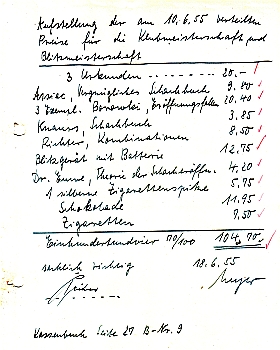 Aufstellung der am 10.6.55 verteilten
Preise für die Klubmeisterschaft und
Blitzmeisterschaft
3 Urkunden - - - - - - - - 20.-
Assiac, Vergnügliches Schachbuch 9.80
3 Exempl. Borowski Eröffnungsfallen 20.40
Knauss, Schachbuch 3.85
Richter, Kombinationen 8,50
Blitzgerät mit Batterie 12,75
Dr. Euwe, Theorie der Schacheröffn. 4,20
1 silberne Zigarettenspitze 5,75
Schokolade 11,95
Zigaretten 7,50
Einhundertundvier 70/100 104,70.-
sachlich richtig 18.6.55
Meyer
Kassenbuch Seite 27 B-Nr. 9